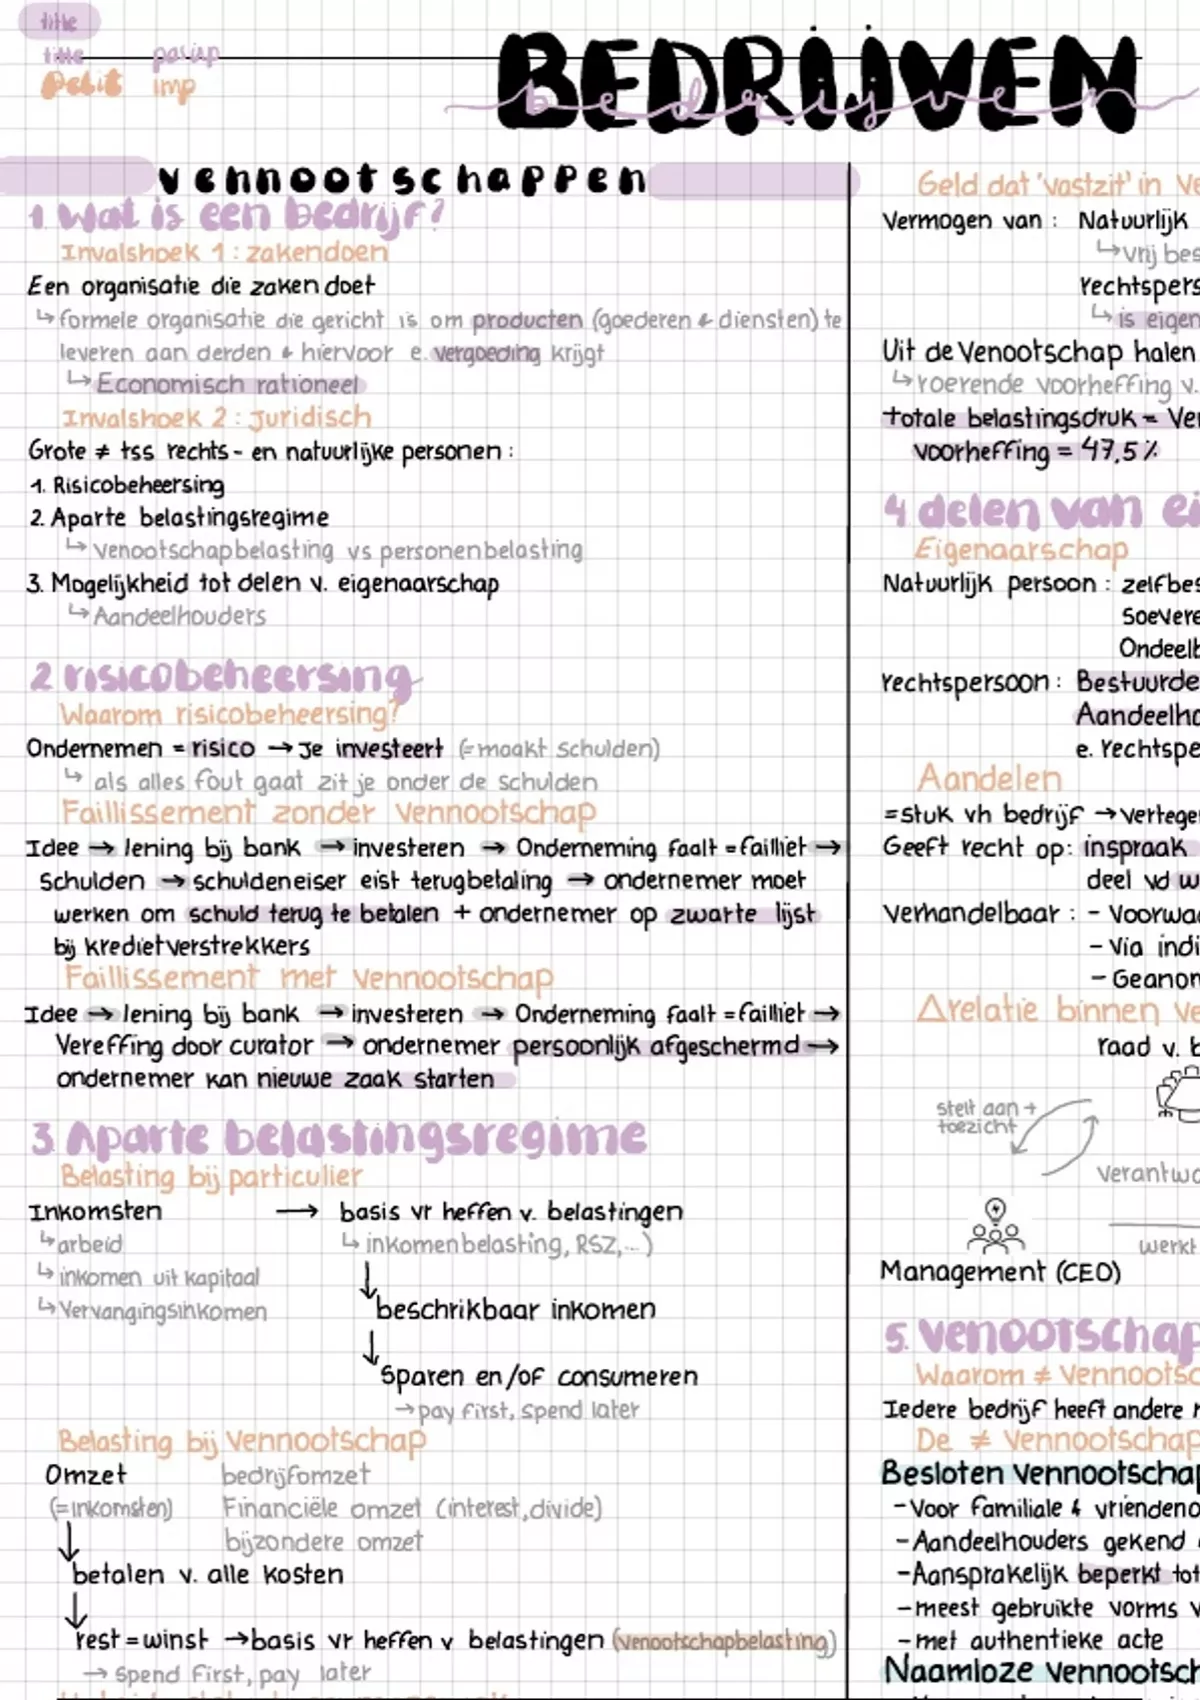 title
title pasiap
Petit imp
BEDRIJVEN
bedrijven
vennootschappen
1. Wat is een bedrijf?
Invalshoek 1 : zakendoen
Een organisatie die zaken doet
↳ formele organisatie die gericht is om producten (goederen & diensten) te
leveren aan derden & hiervoor e. vergoeding krijgt
↳ Economisch rationeel
Invalshoek 2 : Juridisch
Grote ≠ tss rechts- en natuurlijke personen :
1. Risicobeheersing
2. Aparte belastingsregime
↳ Venootschapbelasting vs personenbelasting
3. Mogelijkheid tot delen v. eigenaarschap
↳ Aandeelhouders
2 risicobeheersing
Waarom risicobeheersing?
Ondernemen = risico → Je investeert (= maakt schulden)
↳ als alles fout gaat zit je onder de schulden
Faillissement zonder vennootschap
Idee → lening bij bank → investeren → Onderneming faalt = failliet →
Schulden → schuldeneiser eist terugbetaling → ondernemer moet
werken om schuld terug te betalen + ondernemer op zwarte lijst
bij kredietverstrekkers
Faillissement met vennootschap
Idee → lening bij bank → investeren → Onderneming faalt = failliet →
Vereffing door curator → ondernemer persoonlijk afgeschermd →
ondernemer kan nieuwe zaak starten
3. Aparte belastingsregime
Belasting bij particulier
Inkomsten → basis vr heffen v. belastingen
↳ arbeid ↳ inkomenbelasting, RSZ,...)
↳ inkomen uit kapitaal
↓
↳ Vervangingsinkomen beschrikbaar inkomen
↓
Sparen en/of consumeren
→ pay first, spend later
Belasting bij Vennootschap
Omzet bedrijfomzet
(= inkomsten) Financiële omzet (interest, divide)
↓ bijzondere omzet
betalen v. alle kosten
↓
rest = winst → basis vr heffen v belastingen (venootschapbelasting)
→ Spend first, pay later
Geld dat 'vastzit' in Ve
Vermogen van : Natuurlijk
↳ vrij bes
rechtspers
↳ is eigen
Uit de Venootschap halen
↳ roerende voorheffing v.
totale belastingsdruk = Ver
voorheffing = 47,5 %
4 delen van ei
Eigenaarschap
Natuurlijk persoon : zelfbes
Soevere
Ondeelb
rechtspersoon : Bestuurde
Aandeelho
e. rechtspe
Aandelen
= stuk vh bedrijf → verteger
Geeft recht op: inspraak
deel vd w
Verhandelbaar : - Voorwa
- Via indi
- Geanon
Δrelatie binnen ve
raad v. b
stelt aan +
toezicht
verantwo
werkt
Management (CEO)
5. venootschap
Waarom ≠ Vennootsc
Iedere bedrijf heeft andere r
De ≠ vennootschap
Besloten vennootschap
- Voor familiale & vriendeno
- Aandeelhouders gekend
- Aansprakelijk beperkt tot
- meest gebruikte vorms v
- met authentieke acte
Naamloze vennootsch